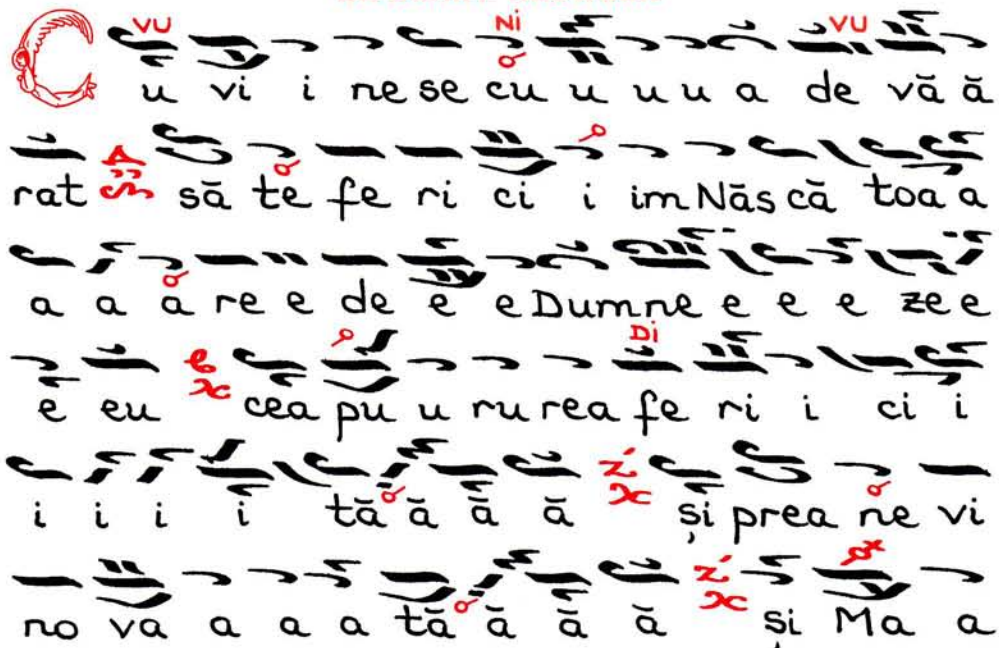 VU NI VU
C u vi i ne se cu u u u a de vă ă
rat să te fe ri ci i im Năs că toa a
a a a re e de e e Dumne e e e ze e
Di
e eu cea pu u ru rea fe ri i ci i
i i i i tă ă ă ă și prea ne vi
no va a a a tă ă ă ă și Ma a